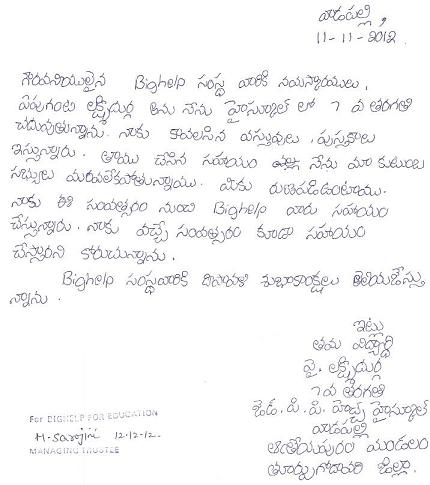 వాడపల్లి,
11-11-2012.
గౌరవనీయులైన Bighelp సంస్థ వారికి నమస్కారములు.
వేపుగంటి లక్ష్మీదుర్గ అను నేను హైస్కూల్ లో 7 వ తరగతి
చదువుతున్నాను. నాకు కావలసిన వస్తువులు, పుస్తకాలు
ఇస్తున్నారు. తాము చేసిన సహాయం నేను మా కుటుంబ
సభ్యులు మరువలేకపోతున్నాము. మీకు రుణపడిఉంటాము.
నాకు ఈ సంవత్సరం నుంచి Bighelp వారు సహాయం
చేస్తున్నారు. నాకు వచ్చే సంవత్సరం కూడా సహాయం
చేస్తారని కోరుచున్నాను.
Bighelp సంస్థవారికి దీపావళి శుభాకాంక్షలు తెలియజేస్తు
న్నాను.
ఇట్లు
తమ విద్యార్థి
వై. లక్ష్మీదుర్గ
7వ తరగతి
జెడ్. పి. పి. హెచ్చ్ హైస్కూల్
వాడపల్లి
ఆత్రేయపురం మండలం
తూర్పుగోదావరి జిల్లా.
For BIGHELP FOR EDUCATION
M. Sarojini 12.12.12.
MANAGING TRUSTEE